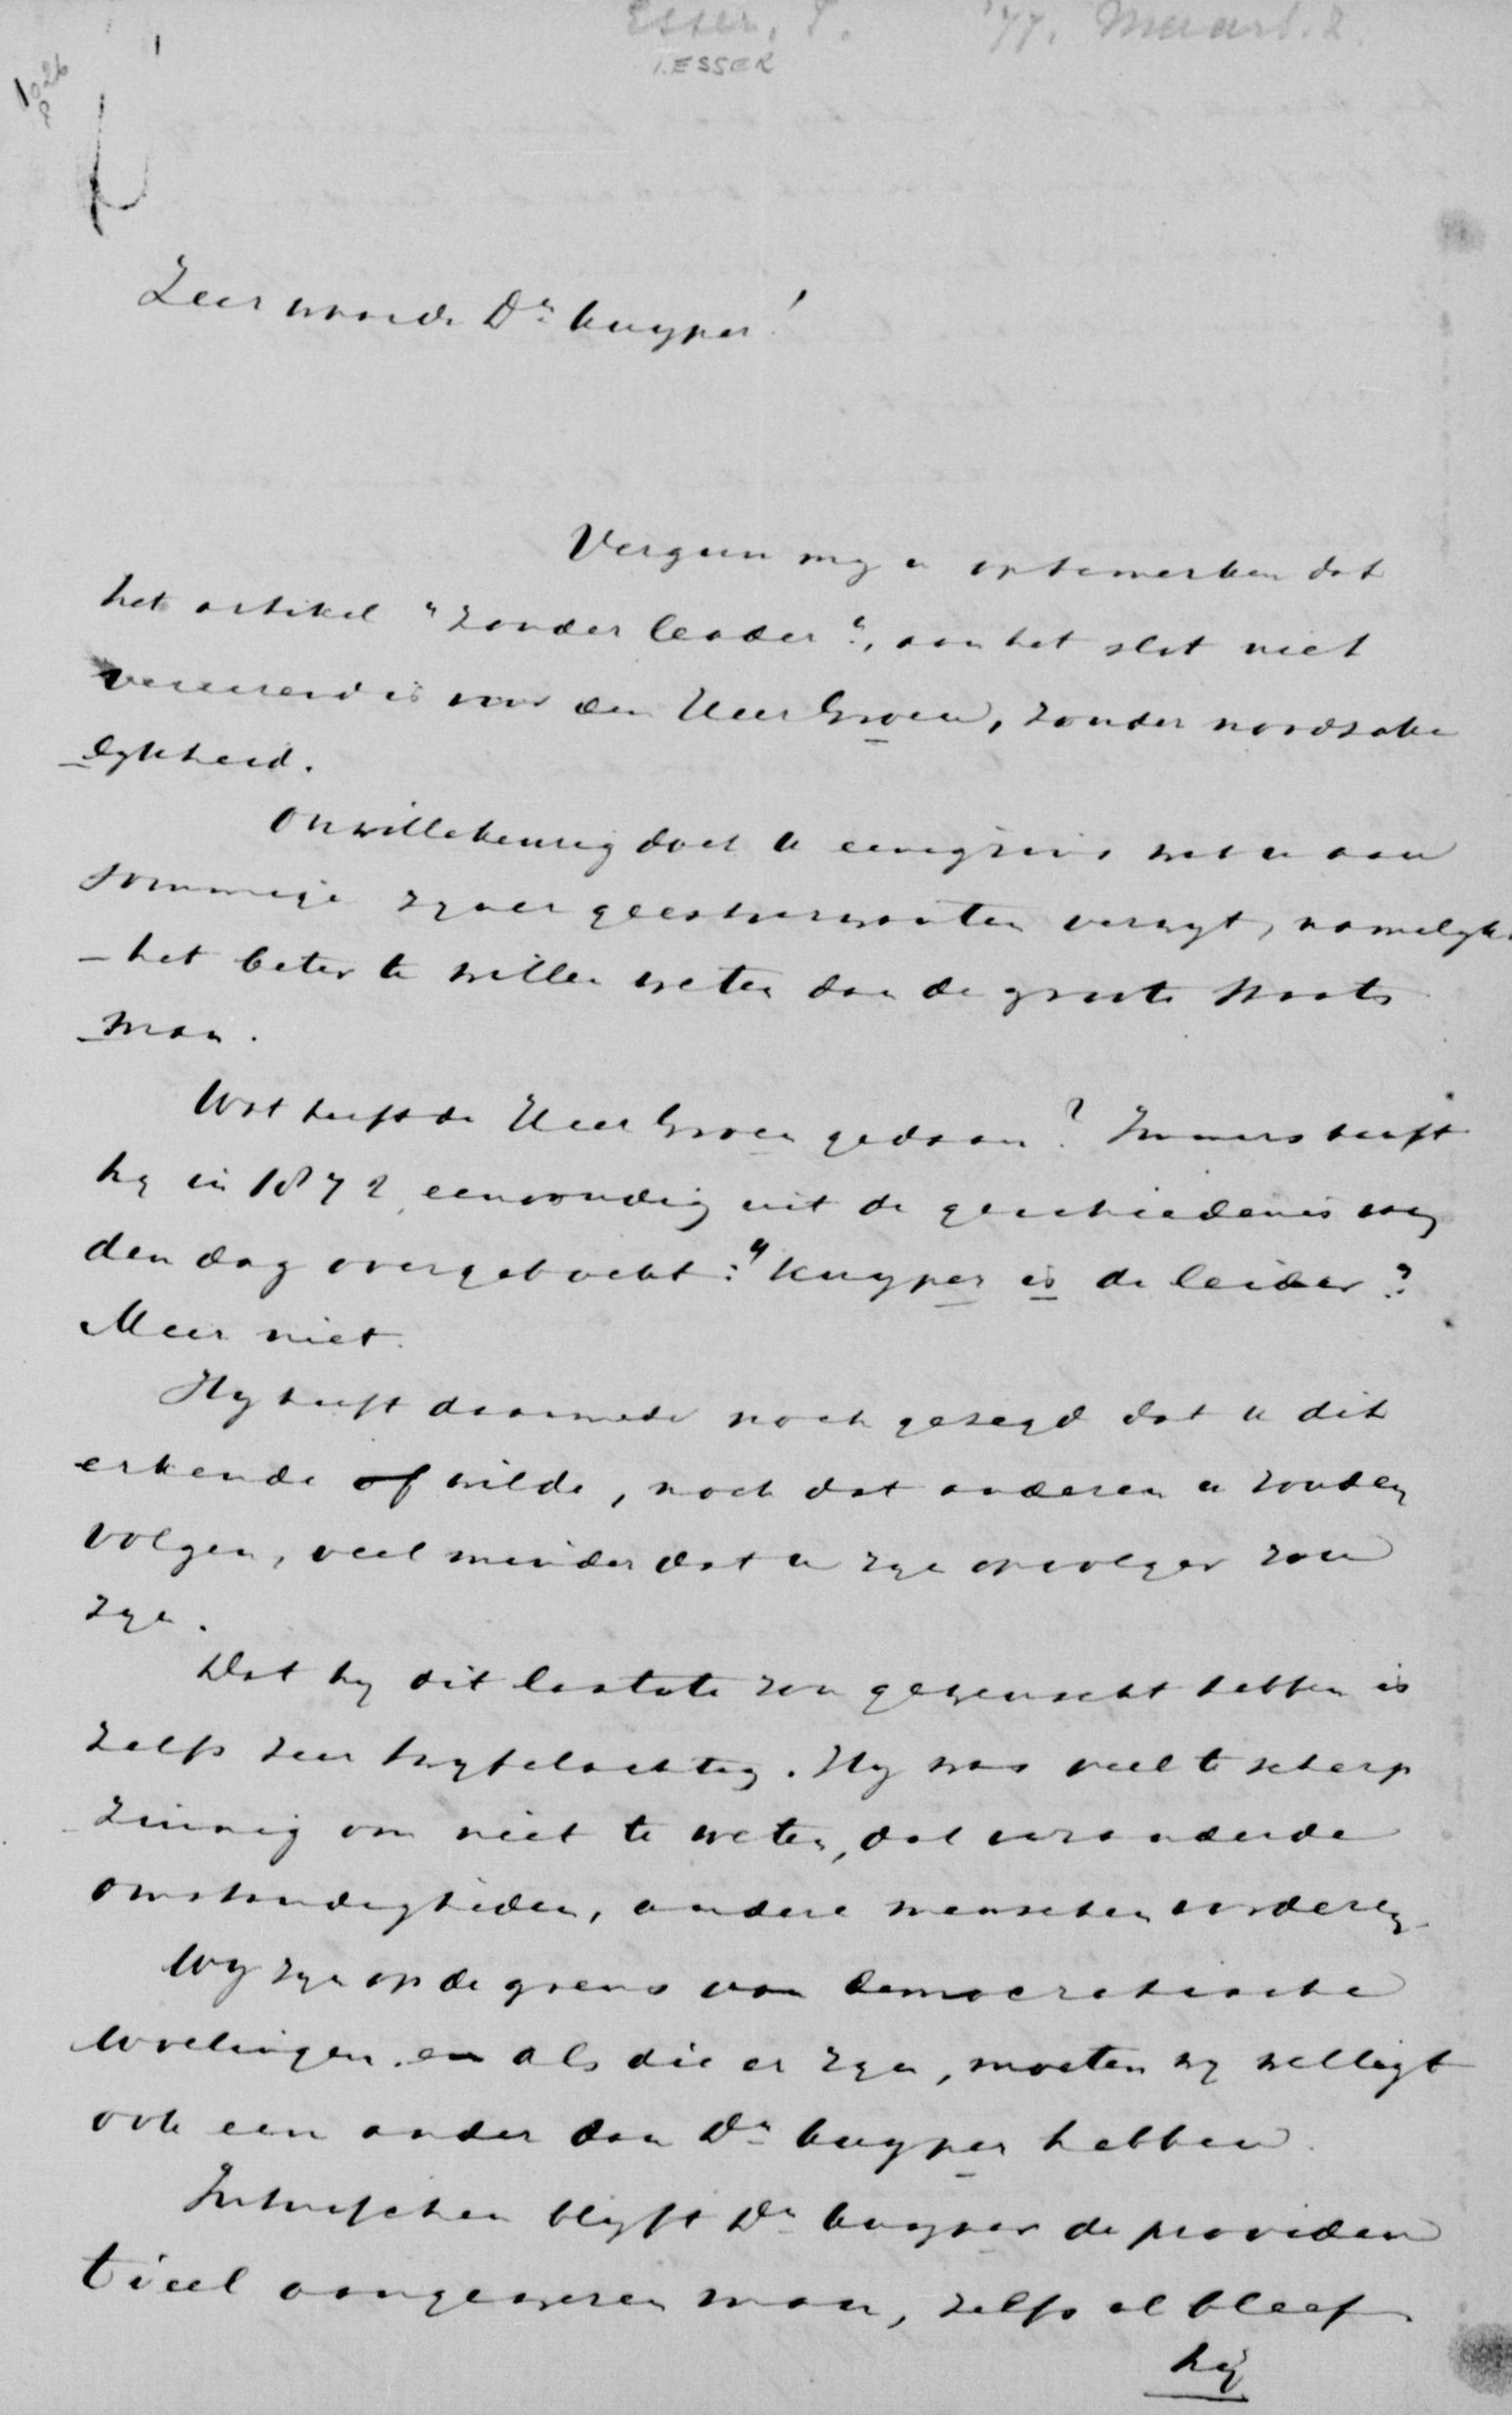 Esser, I. '77. Maart. 2.
I. ESSER
1026
Zeer waarde Dr. Kuyper!
Vergun my u optemerken dat
het artikel "Zonder leader", aan het slot niet
vereerend is voor den Heer Groen, zonder noodzake
lykheid.
Onwillekeurig doet u eenigzins wat u aan
sommige zyner geestverwanten verwyt, namelyk
het beter te willen weten dan de groote staats
man.
Wat heeft de Heer Groen gedaan? Immers heeft
hy in 1872 eenvoudig uit de geschiedenis van
den dag overgeboekt: "Kuyper is de leider"?
Meer niet.
Hy heeft daarmede noch gezegd dat u dit
erkende of wilde, noch dat anderen u zouden
volgen, veel minder dat u zyn opvolger zou
zyn.
Dat hy dit laatste zou gewenscht hebben is
zelfs zeer twyfelachtig. Hy was veel te scherp
zinnig om niet te weten, dat veranderde
omstandigheden, andere menschen vorderen.
Wy zyn op de grens van democratische
woelingen en als die er zyn, moeten wy welligt
ook een ander dan Dr. Kuyper hebben.
Intusschen blyft Dr. Kuyper de providen
tieel aangewezen man, zelfs al bleef
hij